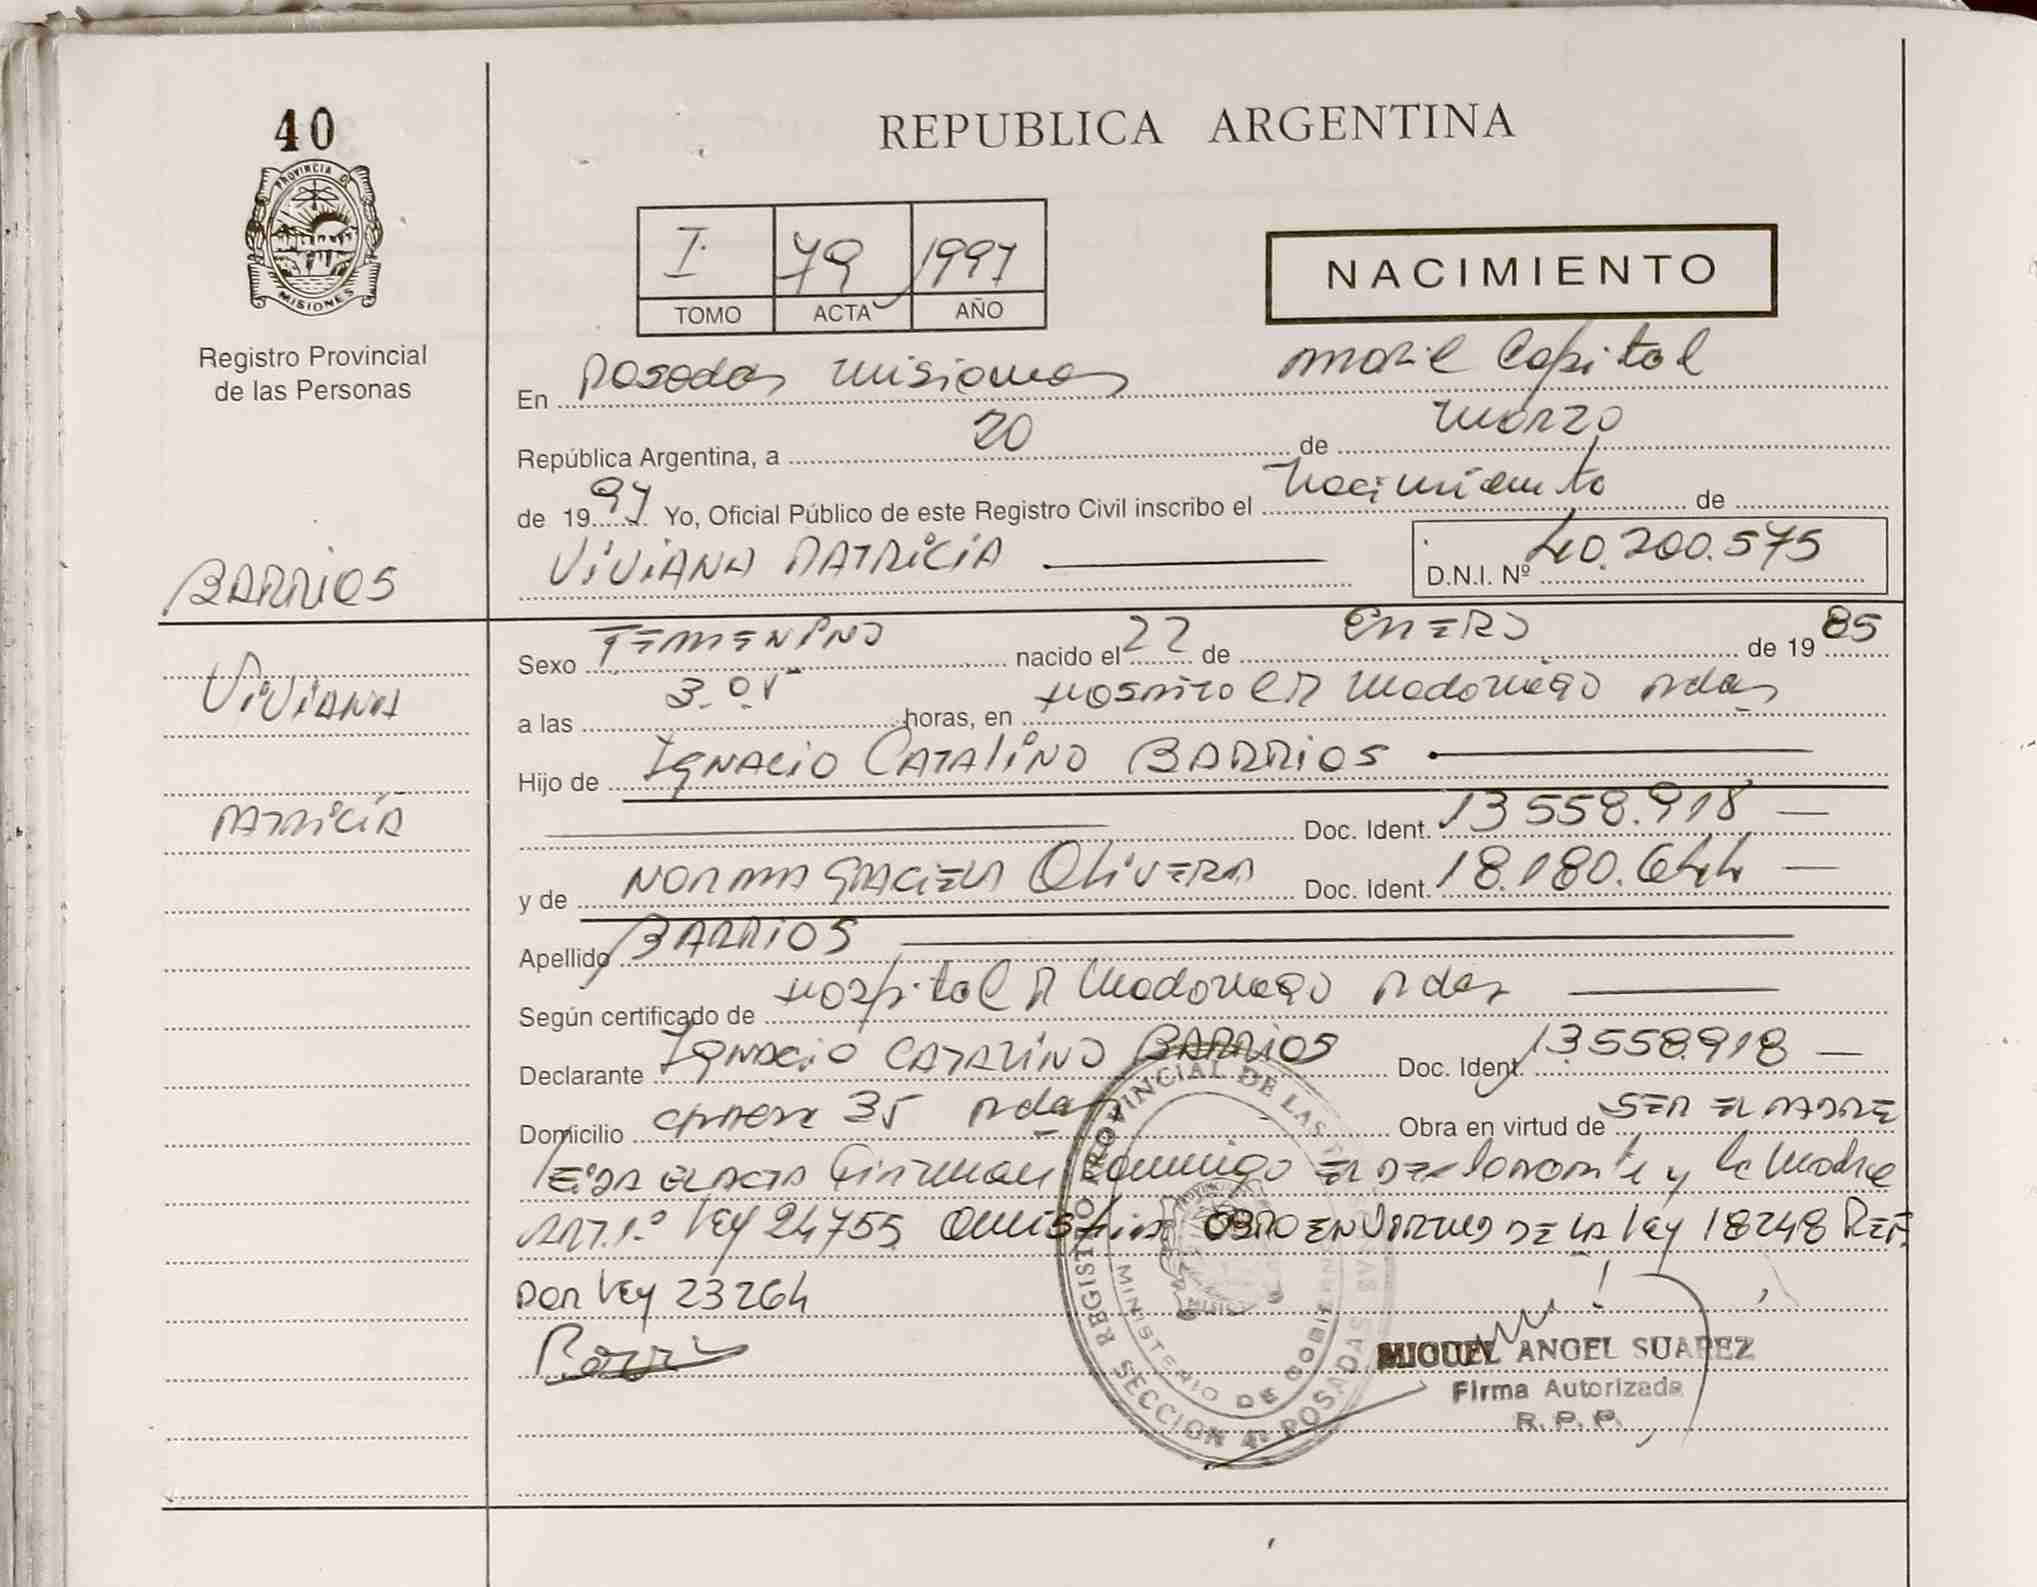 40
REPUBLICA ARGENTINA
PROVINCIA D
MISIONES
Registro Provincial
de las Personas
I 79 1997
TOMO ACTA AÑO
NACIMIENTO
En Posadas Misiones Movil Capital
República Argentina, a 20 de Marzo
de 1997 Yo, Oficial Público de este Registro Civil inscribo el Nacimiento de
VIVIANA PATRICIA D.N.I. Nº 40.200.575
BARRIOS
VIVIANA
PATRICIA
Sexo FEMENINO nacido el 22 de ENERO de 1985
a las horas, en Hospital R Madariaga Pdas
Hijo de IGNACIO CATALINO BARRIOS
Doc. Ident. 13558.918
y de NORMA GRACIELA OLIVERA Doc. Ident. 18.180.644
Apellido BARRIOS
Según certificado de Hospital R Madariaga Pdas
Declarante IGNACIO CATALINO BARRIOS Doc. Ident. 13.558.918
Domicilio CHACRA 35 Pdas Obra en virtud de SER EL PADRE
LEIDA EL ACTA Firman conmigo EL Declarante y la Madre
ART. 1º LEY 24755 Amnistia OBRO EN VIRTUD DE LA LEY 18248 REF.
POR LEY 23264
REGISTRO PROVINCIAL DE LAS PERSONAS
MINISTERIO DE GOBIERNO
SECCION 4ª POSADAS
MIGUEL ANGEL SUAREZ
Firma Autorizada
R. P. P.